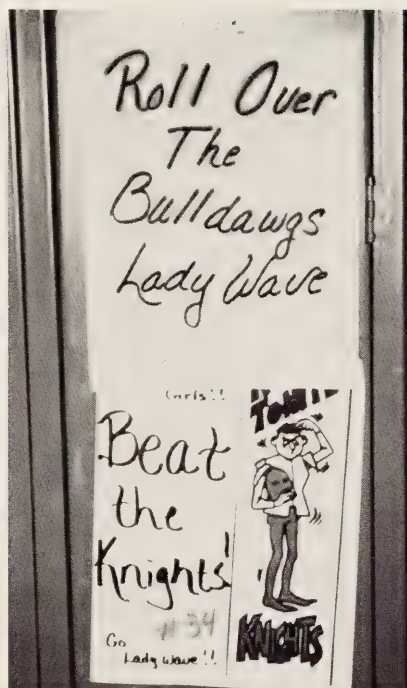 Roll Over
The
Bulldawgs
Lady Wave
Girls!!
Beat
the
Knights!
#34
Go
Lady Wave!!
KNIGHTS